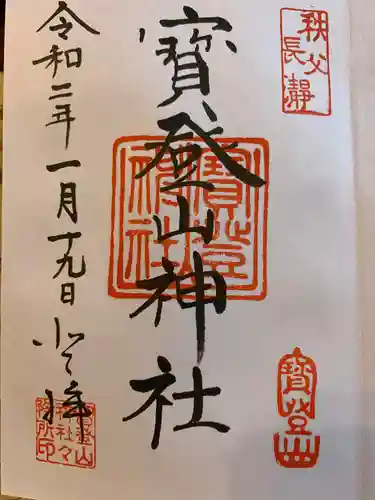 秩父
長瀞
寳登山神社
寳登山
神社
寳登山
令和二年一月十九日
参拝
寳登山
神社々
務所印